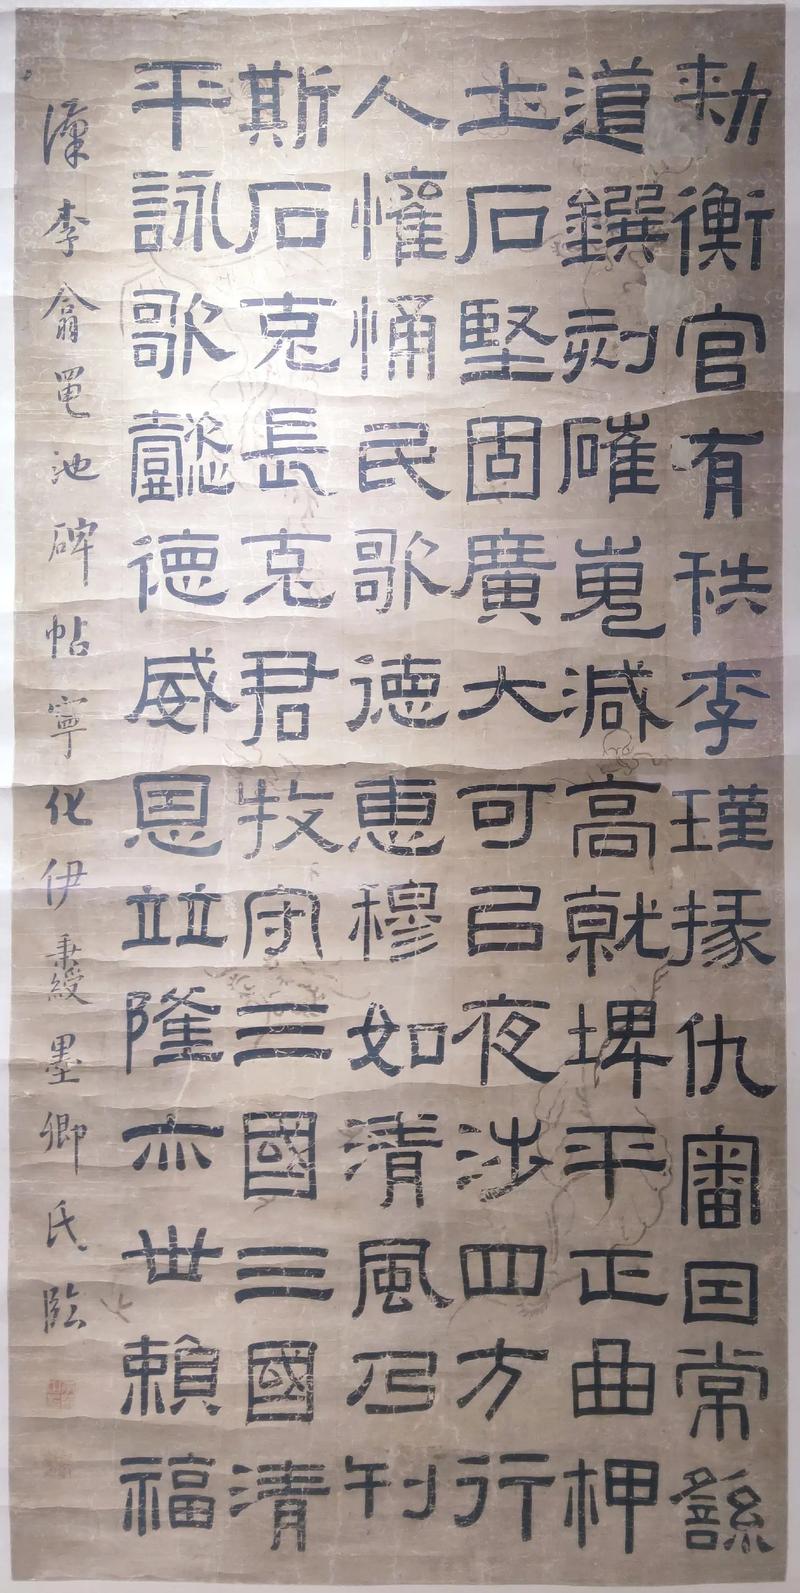 勑衡官有秩李瑾掾仇審因常繇
道鐉刻磪嵬減高就埤平正曲柙
土石堅固廣大可㠯夜涉四方行
人懽悀民歌德惠穆如清風乃刊
斯石克長克君牧守三國三國清
平詠歌懿德威恩並隆亦世賴福
漢李翕黽池碑帖寧化伊秉綬墨卿氏臨